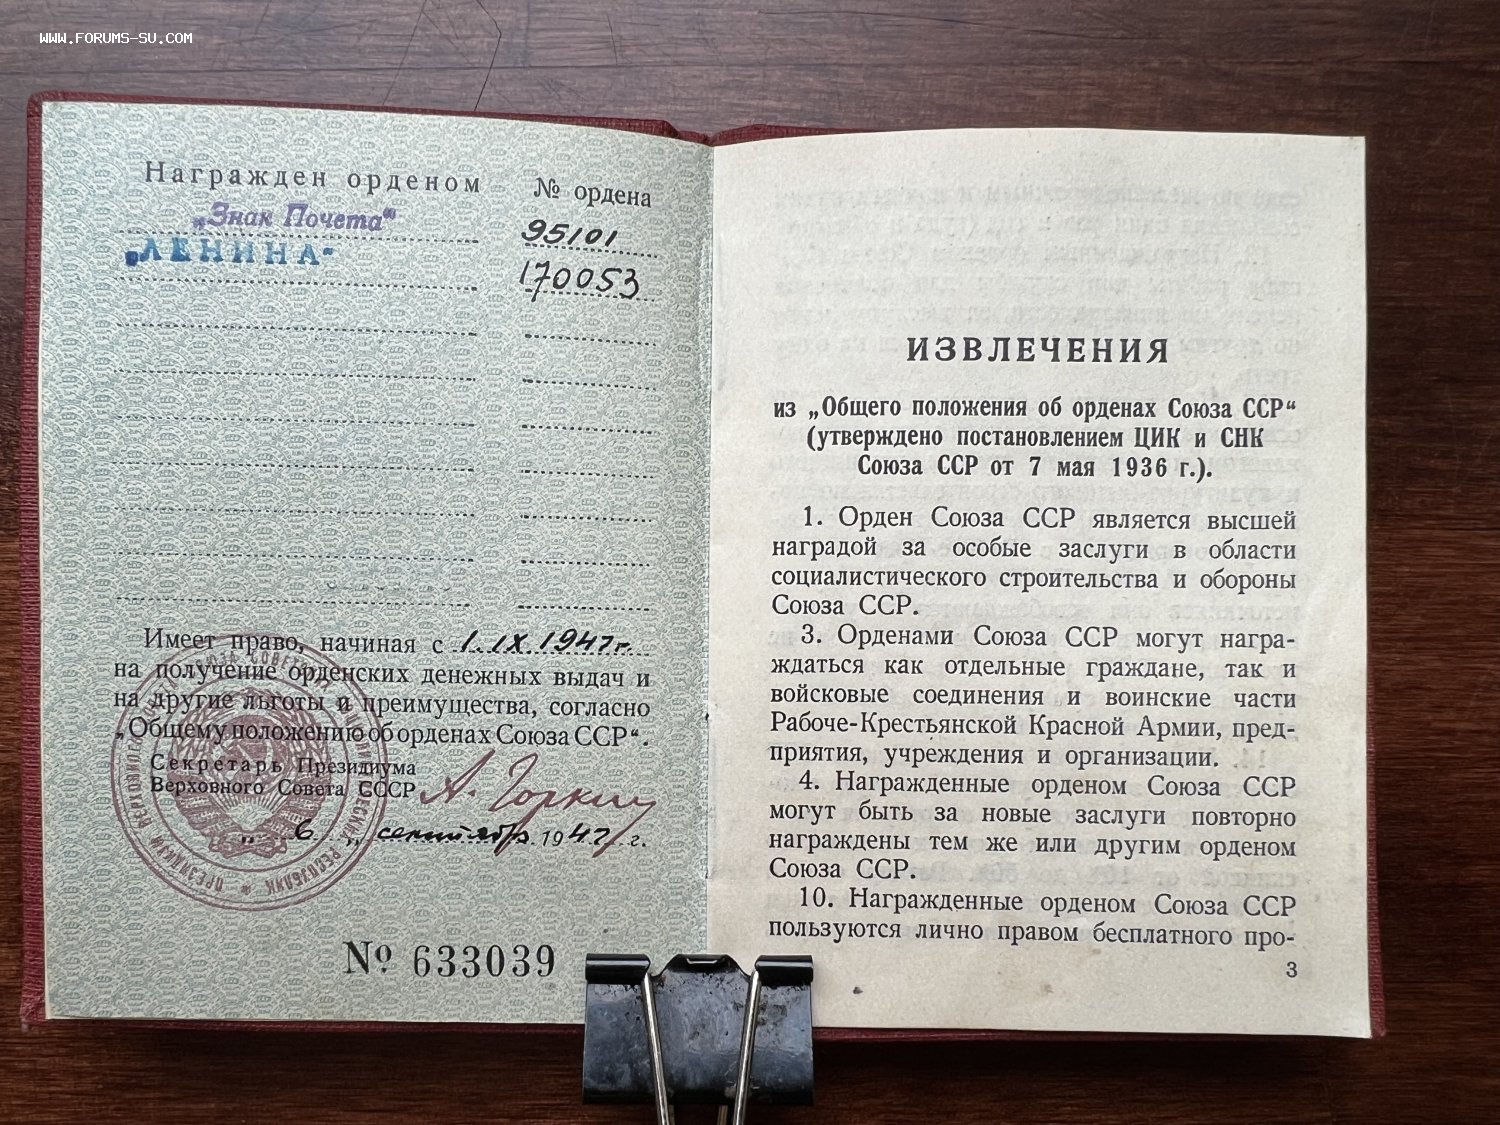 WWW.FORUMS-SU.COM
Награжден орденом № ордена
„Знак Почета“ 95101
„ЛЕНИНА“ 170053
Имеет право, начиная с 1. IX. 1947 г.
на получение орденских денежных выдач и
на другие льготы и преимущества, согласно
„Общему положению об орденах Союза ССР“.
Секретарь Президиума
Верховного Совета СССР А. Горкин
„ 6 „ сентября 1947 г.
№ 633039
ИЗВЛЕЧЕНИЯ
из „Общего положения об орденах Союза ССР“
(утверждено постановлением ЦИК и СНК
Союза ССР от 7 мая 1936 г.).
1. Орден Союза ССР является высшей
наградой за особые заслуги в области
социалистического строительства и обороны
Союза ССР.
3. Орденами Союза ССР могут награ-
ждаться как отдельные граждане, так и
войсковые соединения и воинские части
Рабоче-Крестьянской Красной Армии, пред-
приятия, учреждения и организации.
4. Награжденные орденом Союза ССР
могут быть за новые заслуги повторно
награждены тем же или другим орденом
Союза ССР.
10. Награжденные орденом Союза ССР
пользуются лично правом бесплатного про-
3